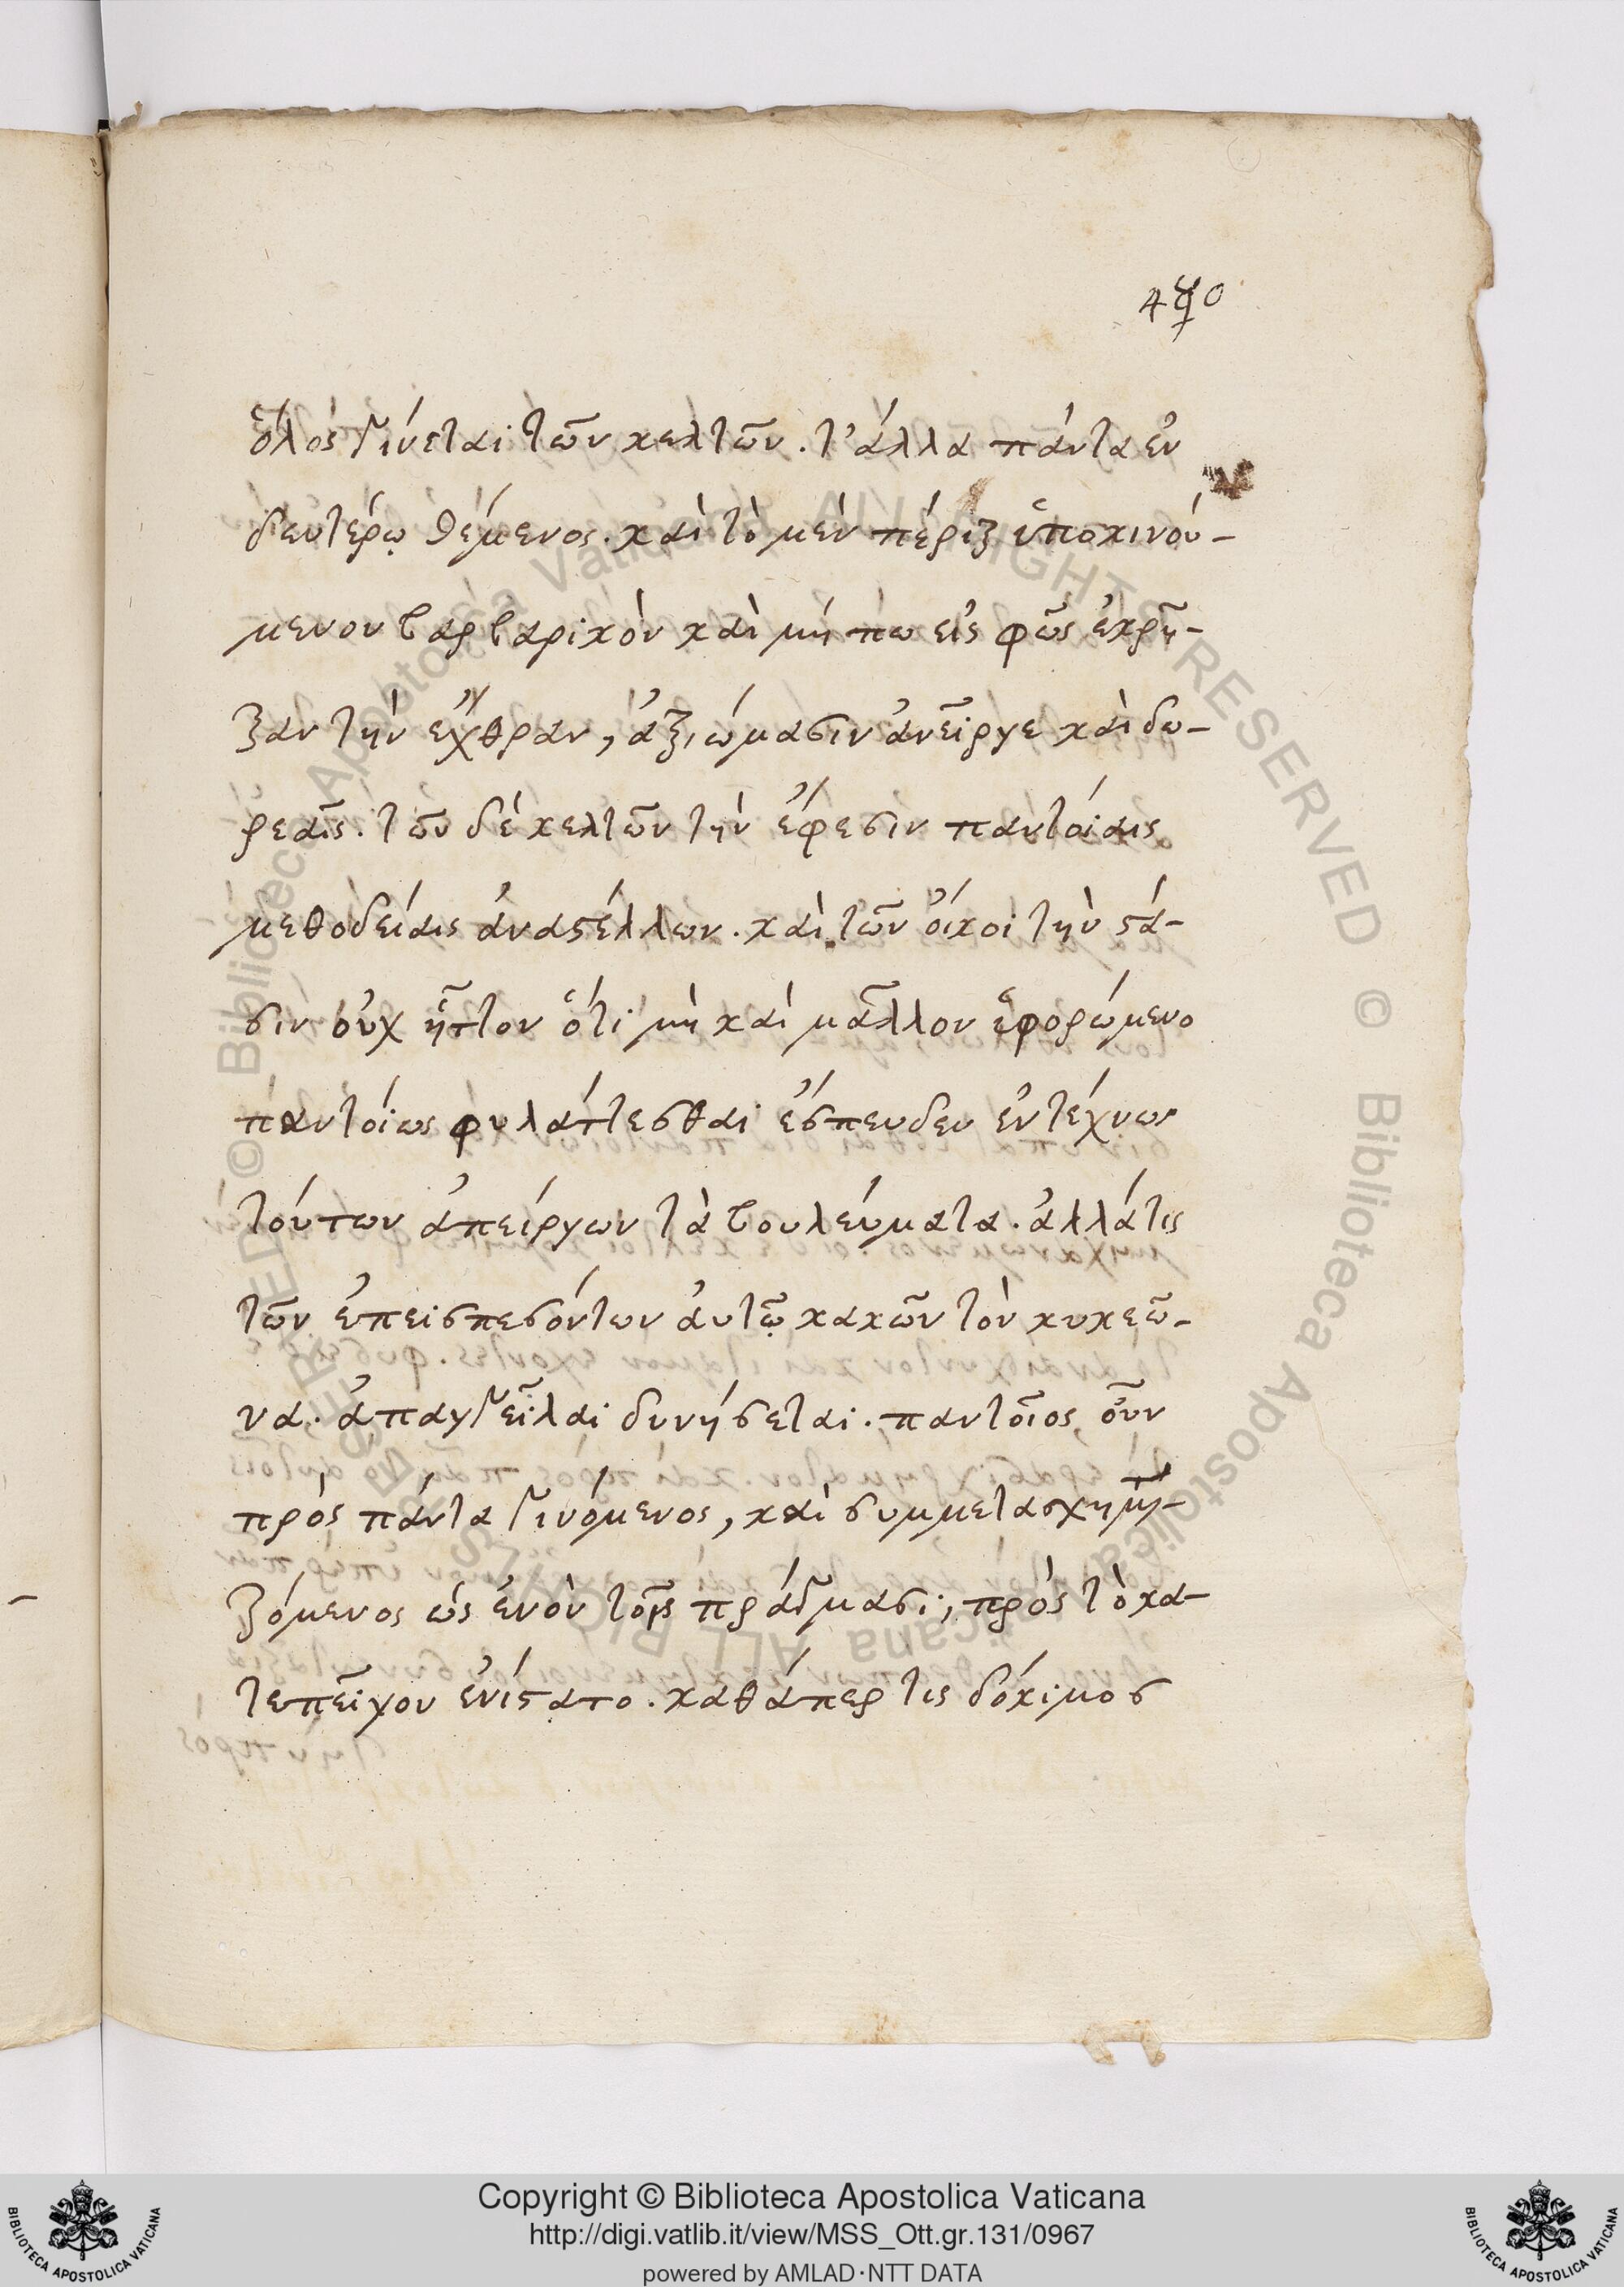 480
ὅλος γίνεται τῶν κελτῶν. τ' ἄλλα πάντα ἐν
δευτέρῳ θέμενος. καὶ τὸ μὲν πέριξ ὑποκινού-
μενον βαρβαρικὸν καὶ μή πω εἰς φῶς ἐκρῆ-
ξαν τὴν ἔχθραν, ἀξιώμασιν ἀνεῖργε καὶ δω-
ρεαῖς. τῶν δὲ κελτῶν τὴν ἔφεσιν παντοίαις
μεθοδείαις ἀναστέλλων. καὶ τῶν οἴκοι τὴν στά-
σιν οὐχ ἧττον ὅτι μὴ καὶ μᾶλλον ἑφορώμενο
παντοίως φυλάττεσθαι ἔσπευδεν ἐντέχνως
τούτων ἀπείργων τὰ βουλεύματα. ἀλλά τις
τῶν ἐπεισπεσόντων αὐτῷ κακῶν τὸν κυκεῶ-
να. ἀπαγγεῖλαι δυνήσεται. παντοῖος οὖν
πρὸς πάντα γινόμενος, καὶ συμμετασχημα-
ζόμενος ὡς ἐνὸν τοῖς πράγμασι, πρὸς τὸ κα-
τεπεῖγον ἐνίστατο. καθάπερ τις δόκιμος
Copyright © Biblioteca Apostolica Vaticana
http://digi.vatlib.it/view/MSS_Ott.gr.131/0967
powered by AMLAD·NTT DATA
BIBLIOTECA APOSTOLICA VATICANA
BIBLIOTECA APOSTOLICA VATICANA